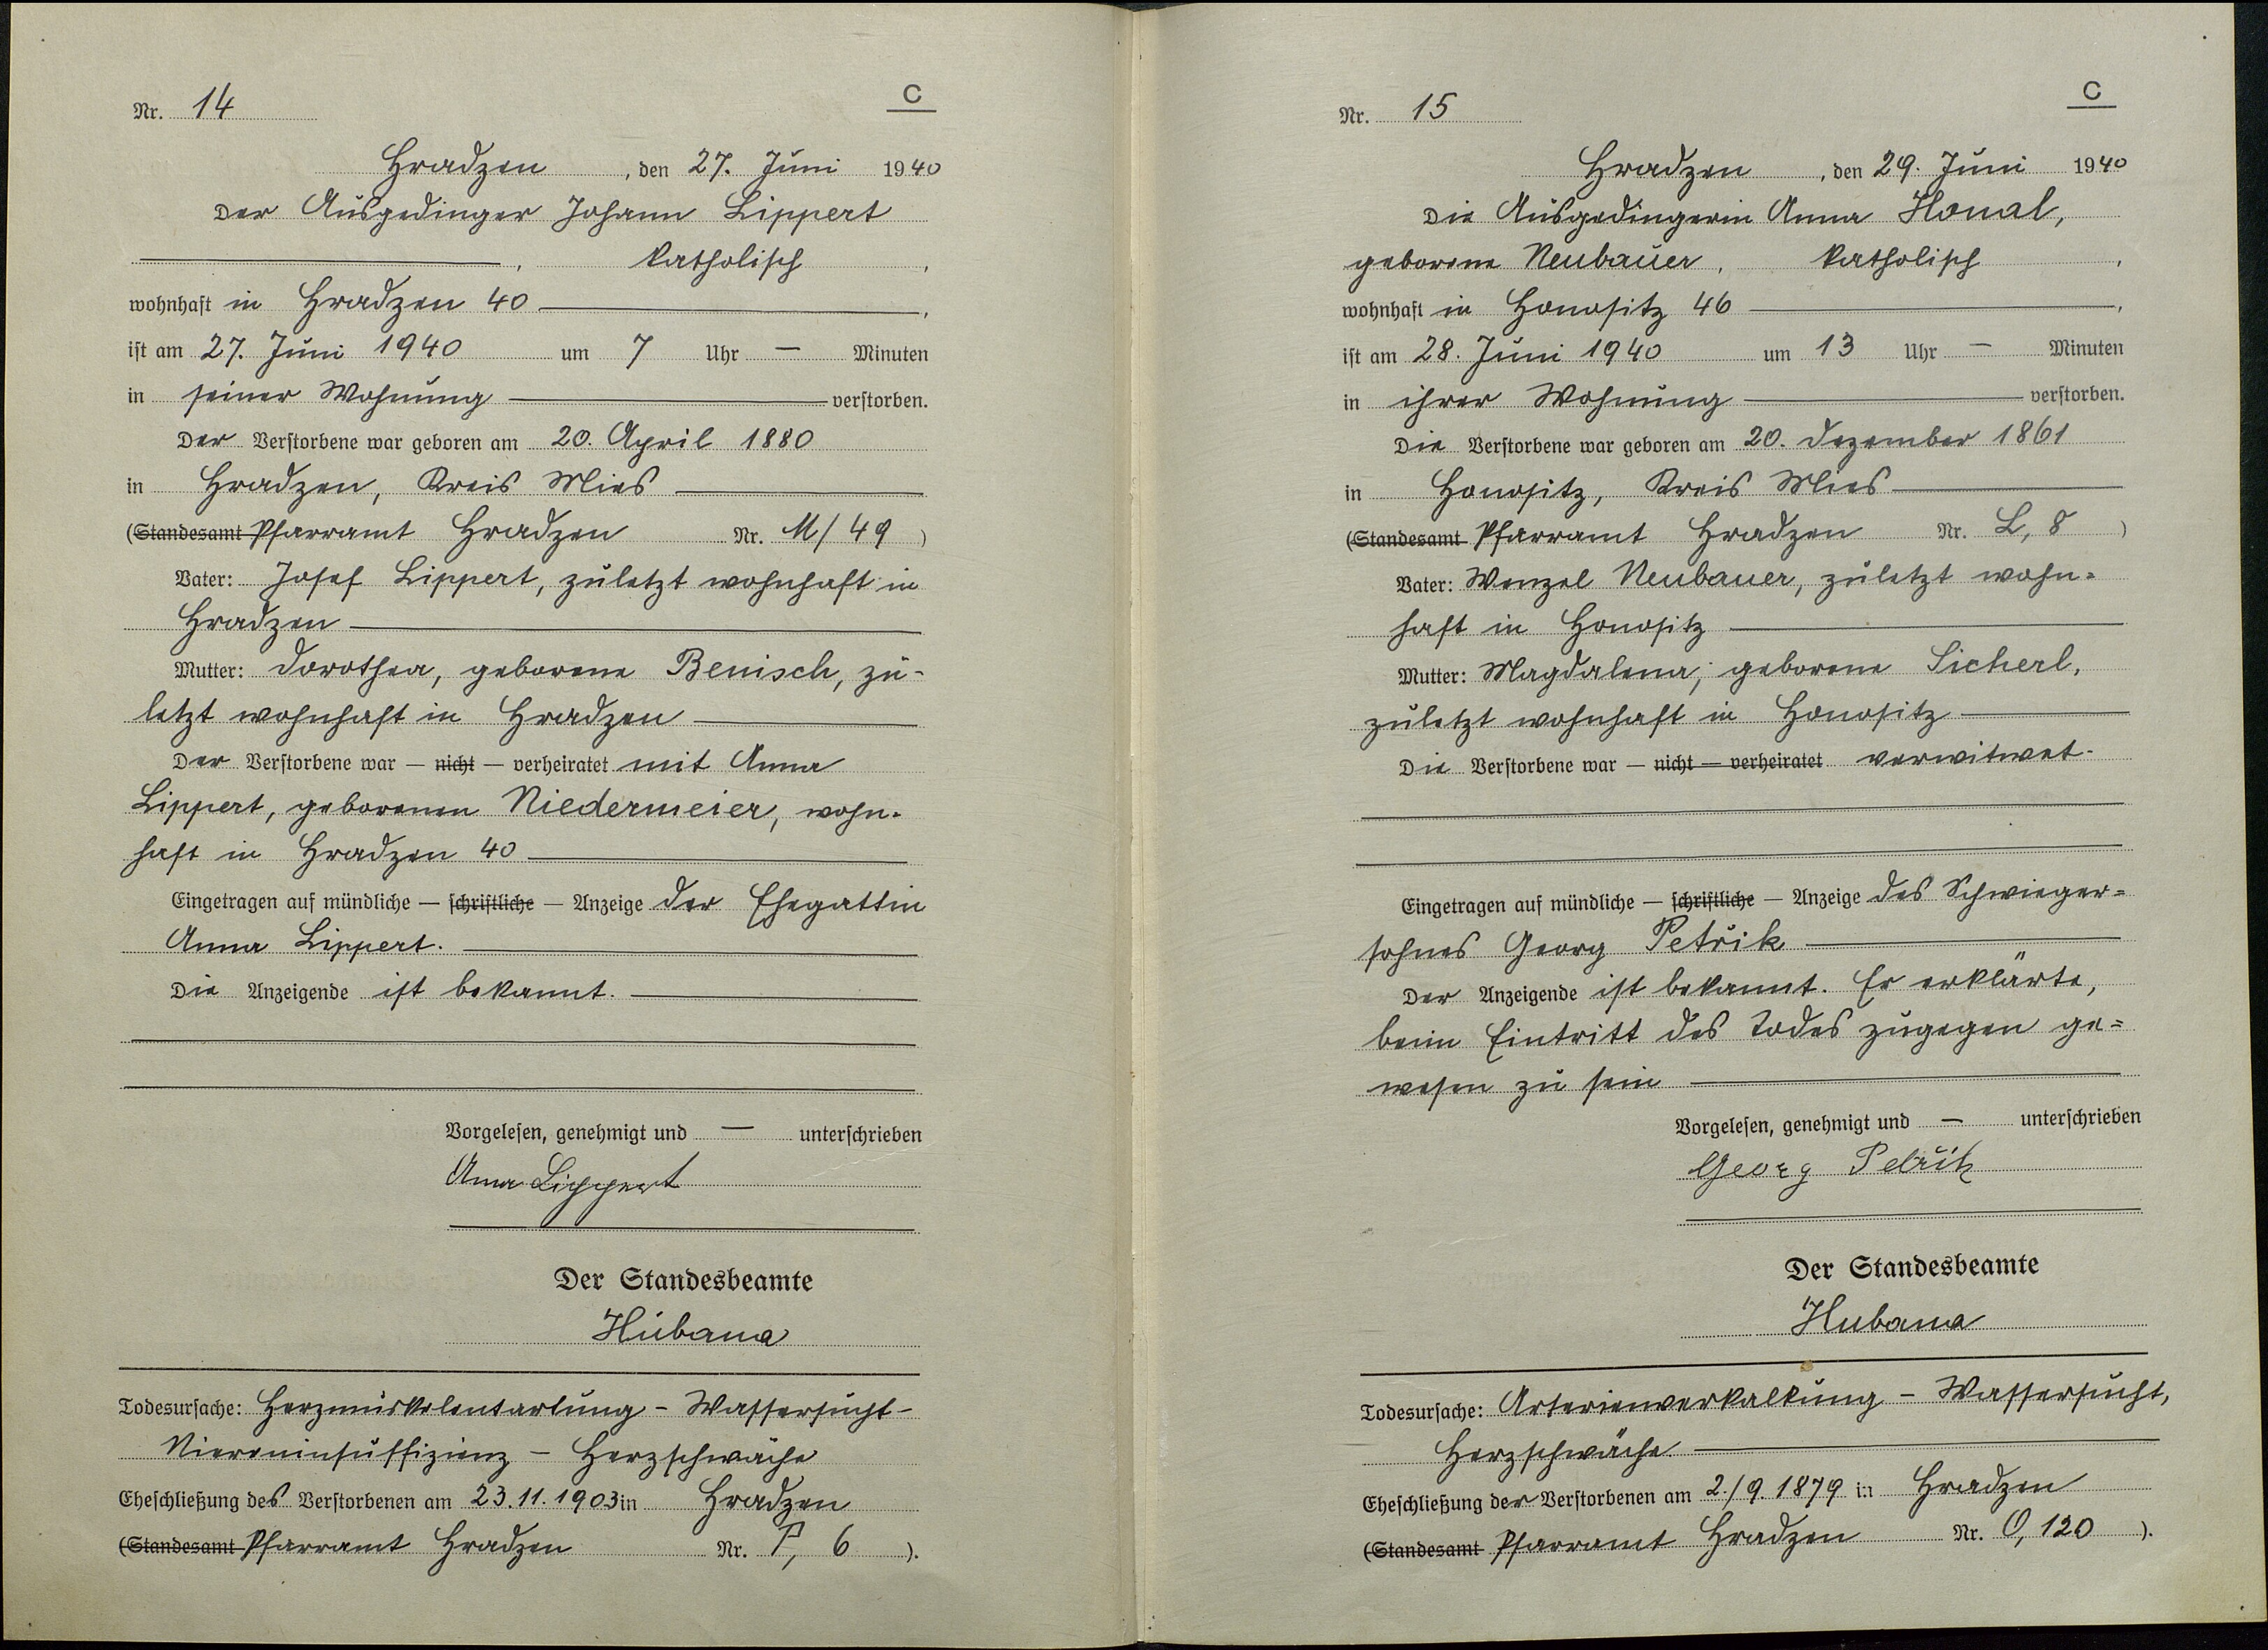 Nr. 14
C
Hradzen, den 27. Juni 1940
Der Ausgedinger Johann Lippert
, katholisch,
wohnhaft in Hradzen 40,
ist am 27. Juni 1940 um 7 Uhr — Minuten
in seiner Wohnung verstorben.
Der Verstorbene war geboren am 20. April 1880
in Hradzen, Kreis Mies
(Standesamt Pfarramt Hradzen Nr. M/49)
Vater: Josef Lippert, zuletzt wohnhaft in
Hradzen
Mutter: Dorothea, geborene Benisch, zu-
letzt wohnhaft in Hradzen
Der Verstorbene war — nicht — verheiratet mit Anna
Lippert, geborenen Niedermeier, wohn-
haft in Hradzen 40
Eingetragen auf mündliche — schriftliche — Anzeige der Ehegattin
Anna Lippert.
Die Anzeigende ist bekannt.
Vorgelesen, genehmigt und — unterschrieben
Anna Lippert
Der Standesbeamte
Hubana
Todesursache: Herzmuskelentartung - Wassersucht -
Niereninsuffizienz - Herzschwäche
Eheschließung des Verstorbenen am 23.11.1903 in Hradzen
(Standesamt Pfarramt Hradzen Nr. P, 6).
Nr. 15
C
Hradzen, den 29. Juni 1940
Die Ausgedingerin Anna Honal,
geborene Neubauer, katholisch,
wohnhaft in Honositz 46,
ist am 28. Juni 1940 um 13 Uhr — Minuten
in ihrer Wohnung verstorben.
Die Verstorbene war geboren am 20. Dezember 1861
in Honositz, Kreis Mies
(Standesamt Pfarramt Hradzen Nr. L, 8)
Vater: Wenzel Neubauer, zuletzt wohn-
haft in Honositz
Mutter: Magdalena, geborene Sicherl,
zuletzt wohnhaft in Honositz
Die Verstorbene war — nicht — verheiratet verwitwet.
Eingetragen auf mündliche — schriftliche — Anzeige des Schwieger=
sohnes Georg Petřik
Der Anzeigende ist bekannt. Er erklärte,
beim Eintritt des Todes zugegen ge=
wesen zu sein
Vorgelesen, genehmigt und — unterschrieben
Georg Petřik
Der Standesbeamte
Hubana
Todesursache: Arterienverkalkung - Wassersucht,
Herzschwäche
Eheschließung der Verstorbenen am 2./9.1879 in Hradzen
(Standesamt Pfarramt Hradzen Nr. O, 120).